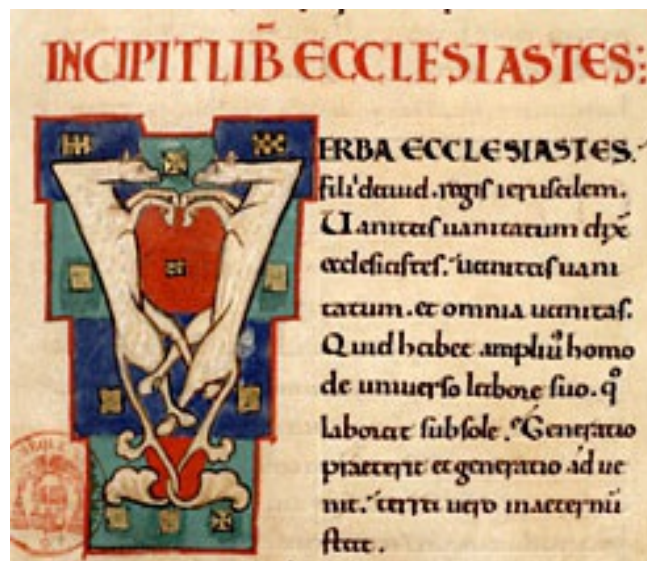 INCIPIT LIB̄ ECCLESIASTES:
VERBA ECCLESIASTES.
filii dauid. regis ierusalem.
Uanitas uanitatum dix̄
ecclesiastes. uanitas uani
tatum. et omnia uanitas.
Quid habet ampliuſ homo
de uniuerso labore suo. qͦ
laborat sub sole. Generatio
praeterit et generatio adue
nit. terra uero in aeternū
stat.